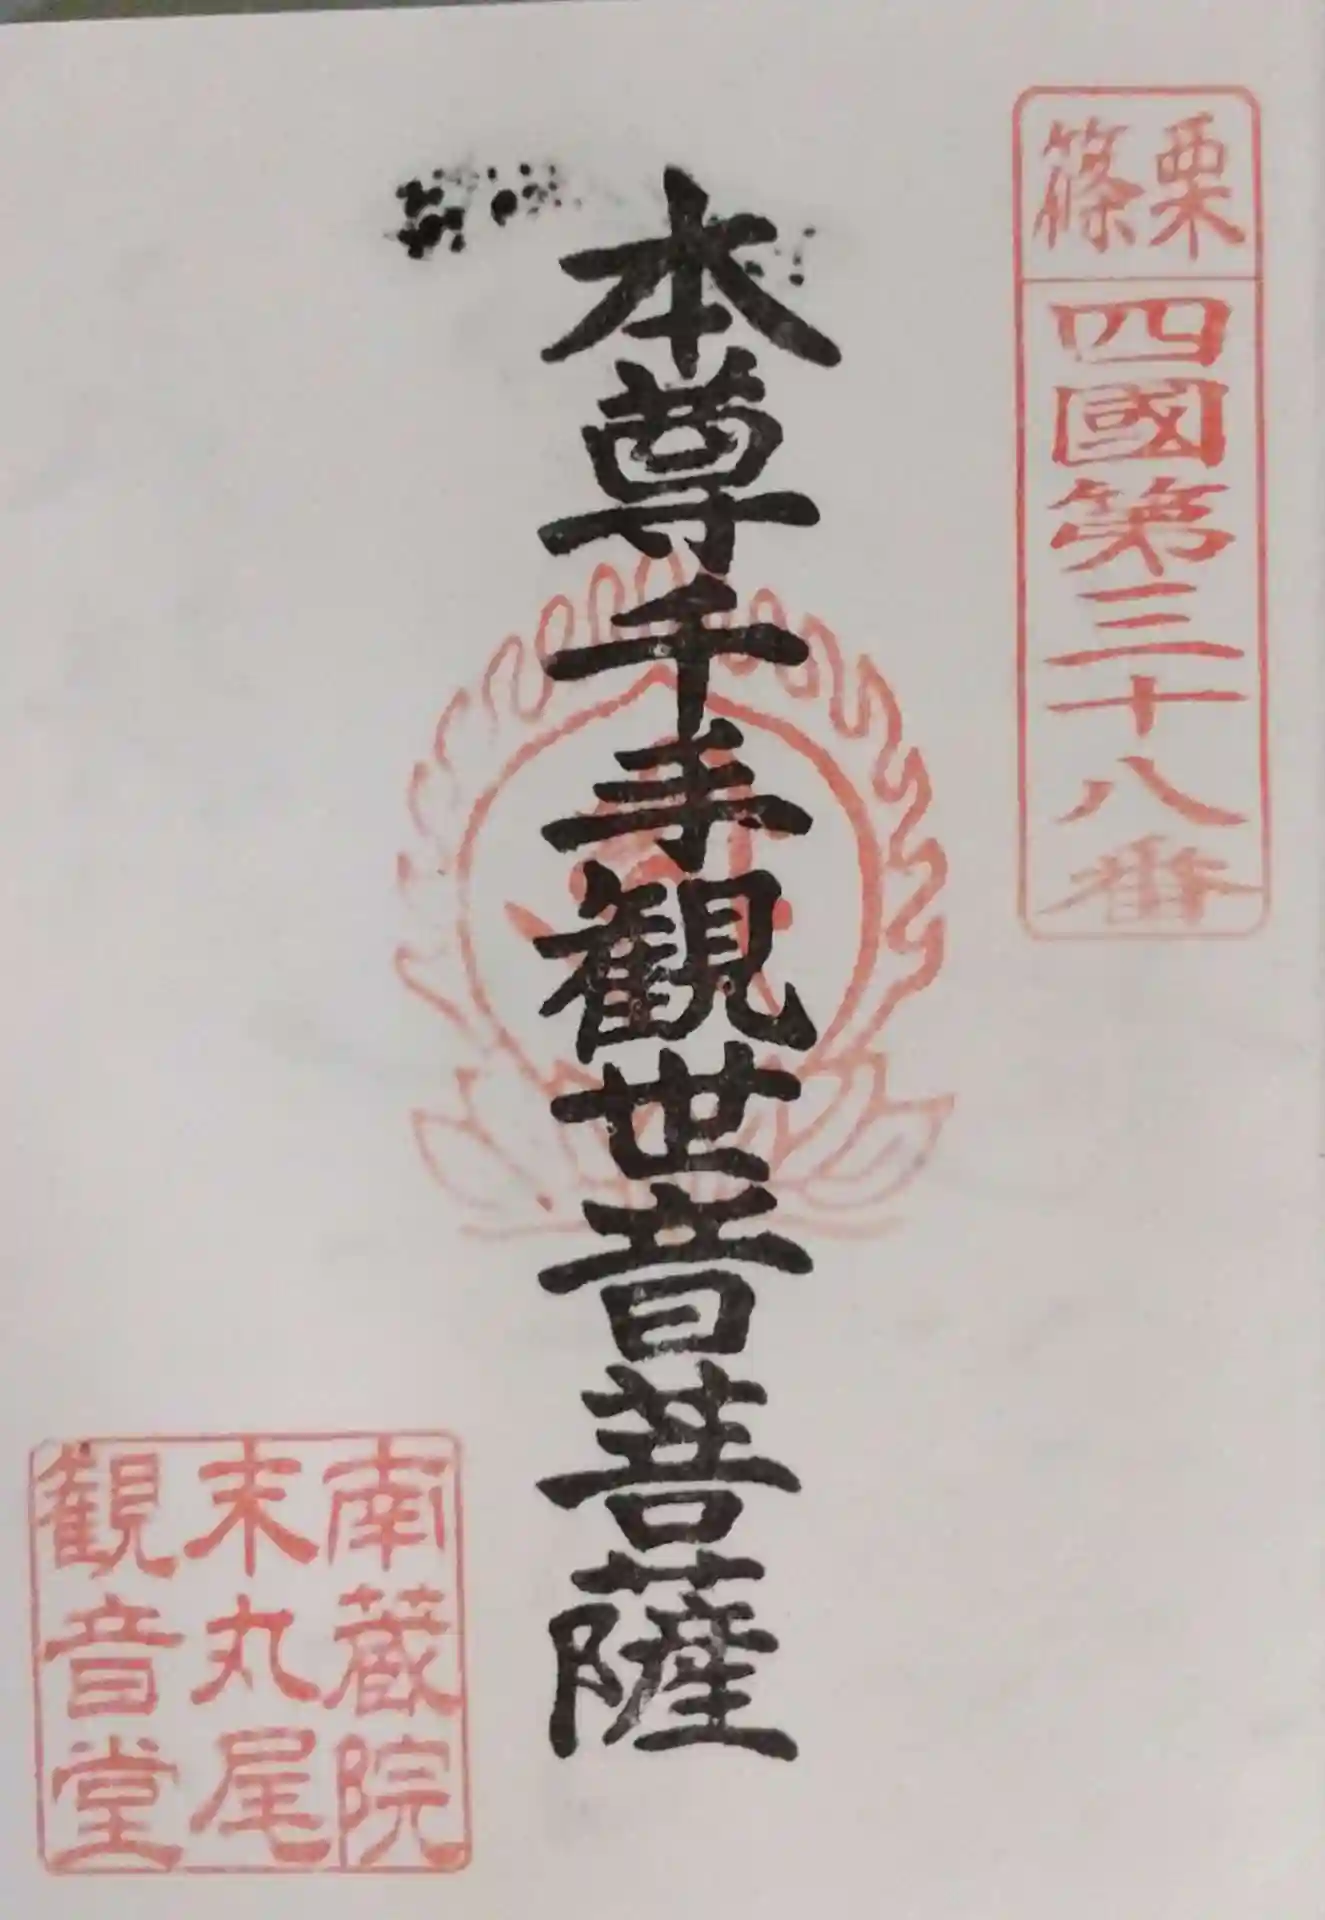 篠栗
四國第三十八番
本尊千手観世音菩薩
南蔵院
末丸尾
観音堂